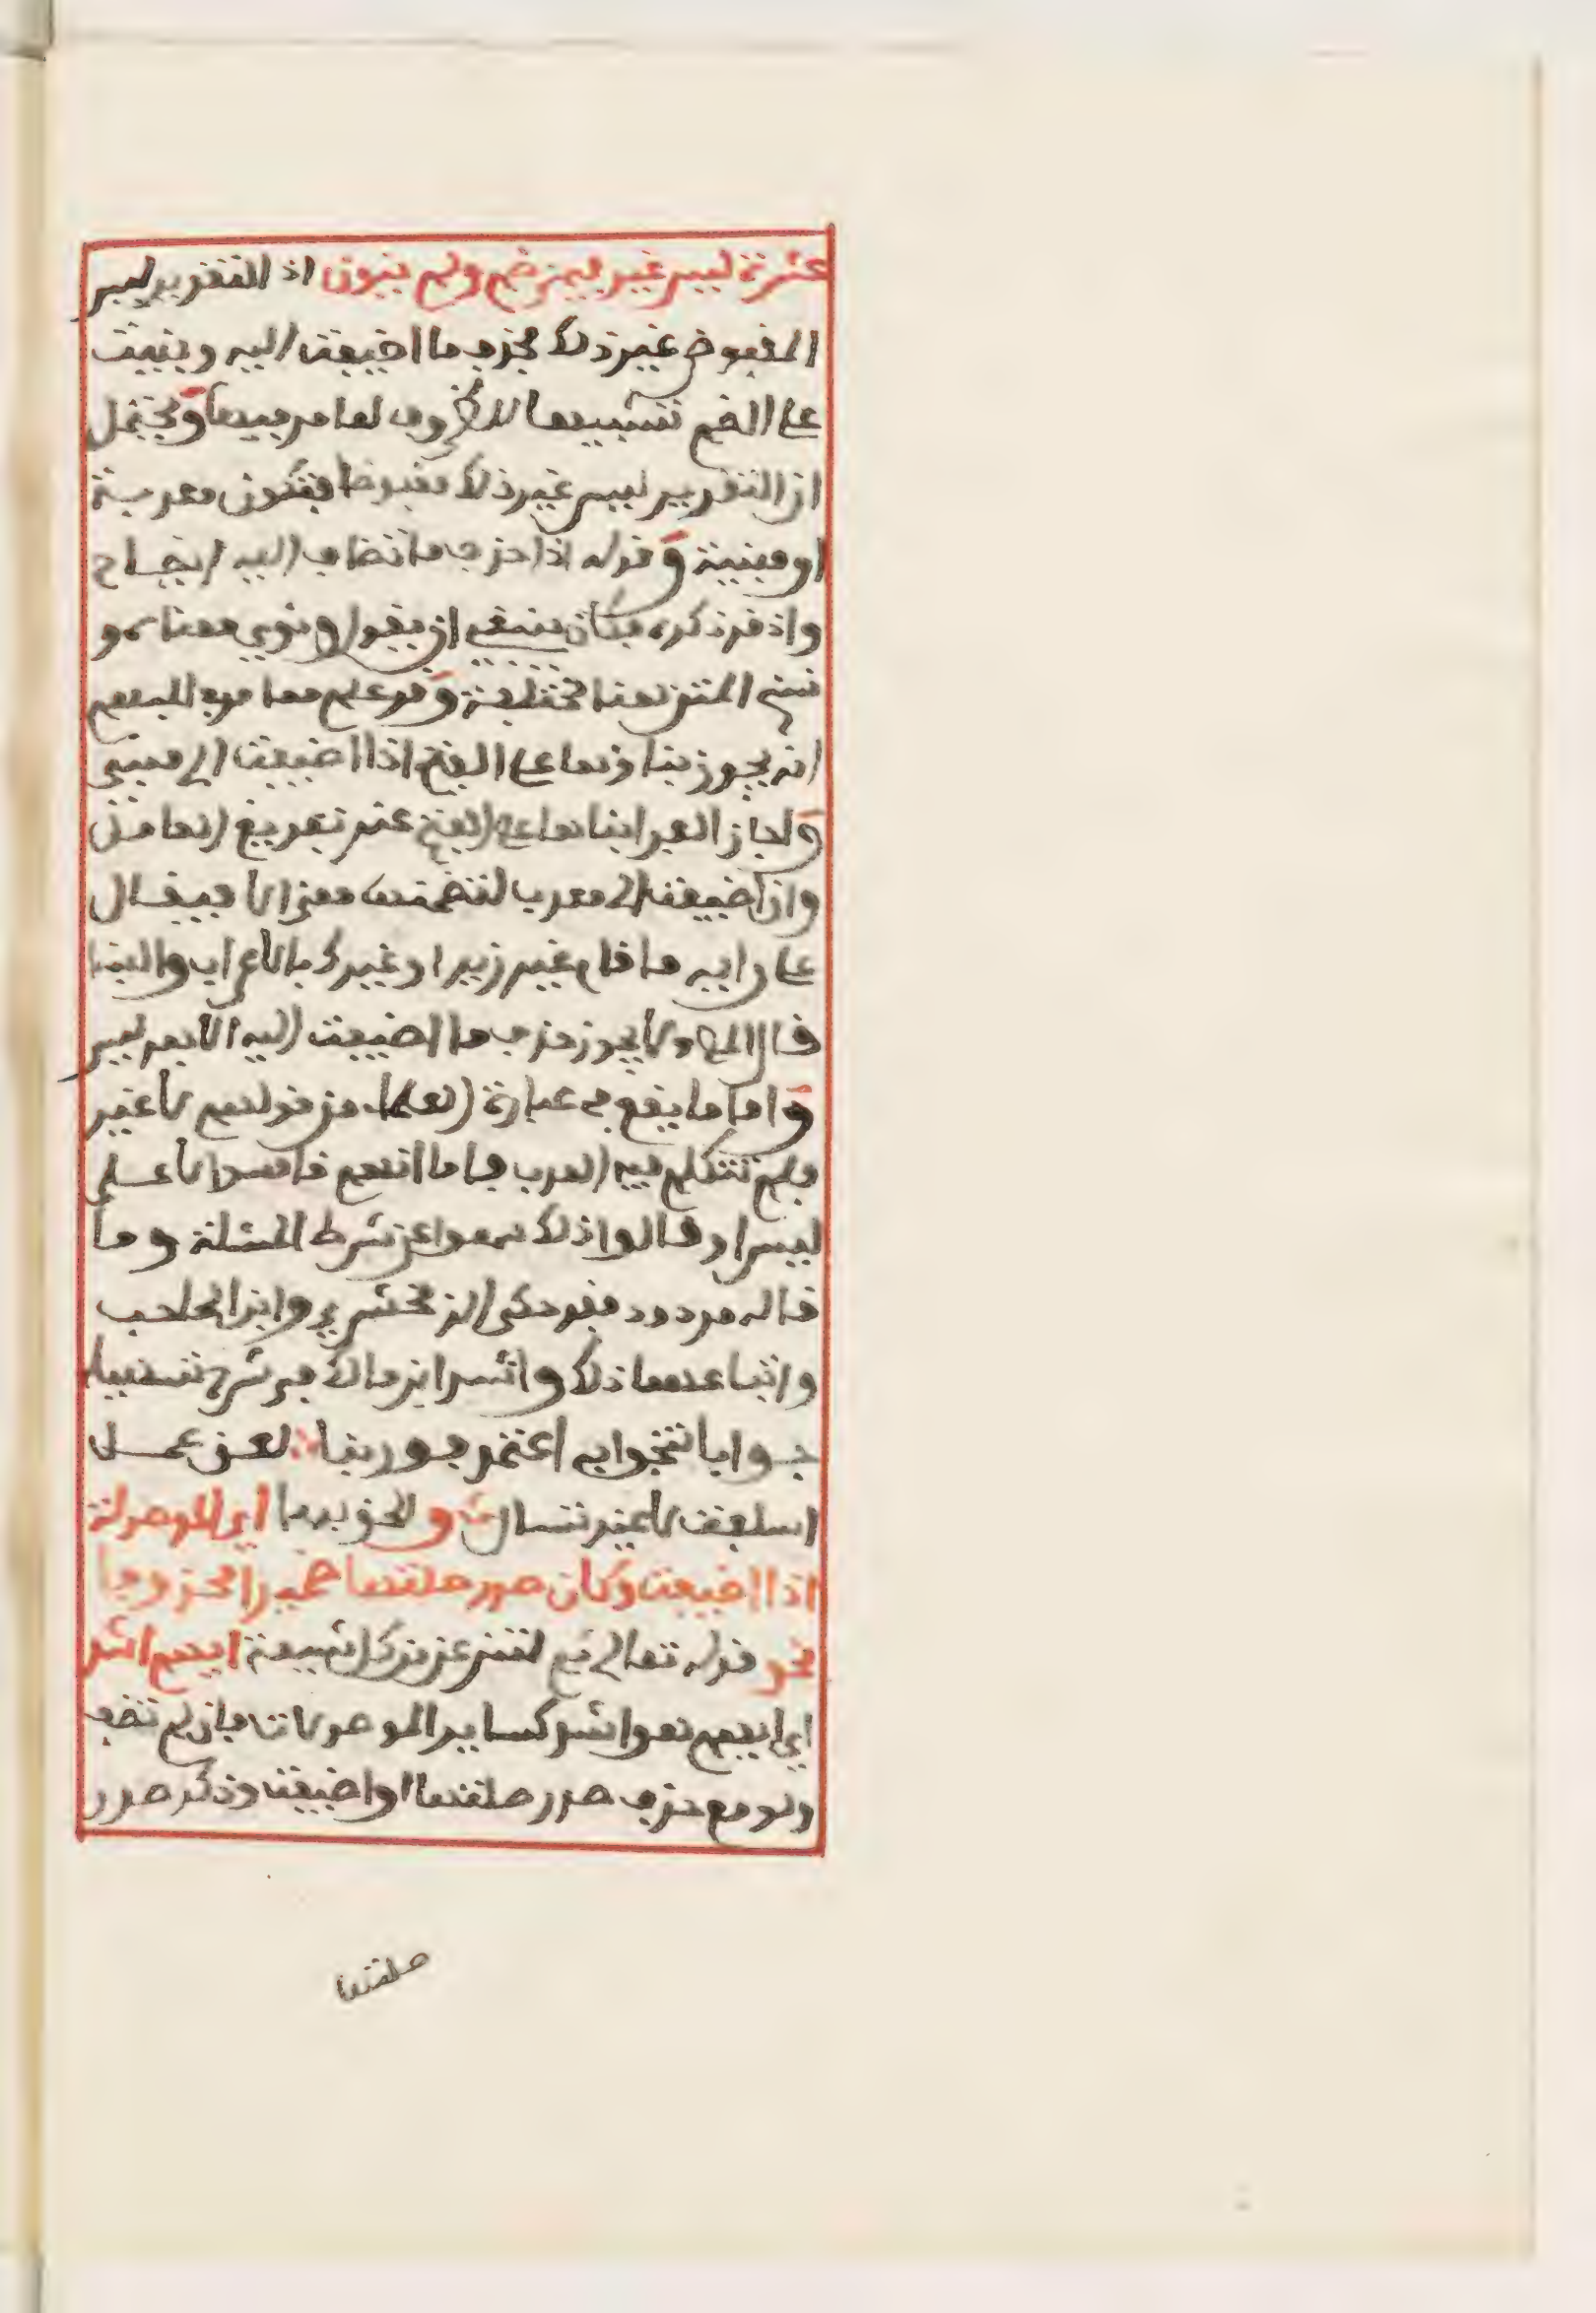 عشرة ليس غير فيمن ضم ولم ينون اذ التقدير ليس
المقبوض غير ذلك فحذف ما اضيفت اليه وبنيت
على الضم تشبيها للظروف لها من فيها ويحتمل
ان التقدير ليس غير ذلك مقبوضا فتكون معربة
او مبنية وقوله اذا حذف ما تضاف اليه ايضاح
واذ قد ذكره فكان ينبغي ان يقول ونوي معناه و
نسخ المتن هنا مختلفة وقد علم مما مر في المبهم
انه يجوز بناؤها على الفتح اذا اضيفت الى مبني
واجاز الفرا بناءها على الفتح عند تفريغ العامل
وان اضيفت الى معرب لتضمنها معنى الا فيقال
على رايه ما قام غير زيد او غيرك بالاعراب والبنا
قال المص ولا يجوز حذف ما اضيفت اليه الا بعد ليس
واما ما يقع في عبارة العلماء من قولهم لا غير
فلم تتكلم فيه العرب فاما انهم قاسوا لا على
ليس او قالوا ذلك سهوا عن شرط المسئلة وما
قاله مردود فقد حكى الزمخشري وابن الحاجب
واتباعهما ذلك وانشد ابن مالك في شرح تسهيله
جوابا تنجو به اعتمد فوربنا لعن عمل
اسلفت لا غير تسال و الحق بهما اي الموصولة
اذا اضيفت وكان صدر صلتها ضميرا محذوفا
نحو قوله تعالى ثم لننزعن من كل شيعة ايهم اشد
اي ايهم هو اشد كساير الموصولات فان لم تضف
ولو مع حذف صدر صلتها او اضيفت وذكر صدر
صلتها